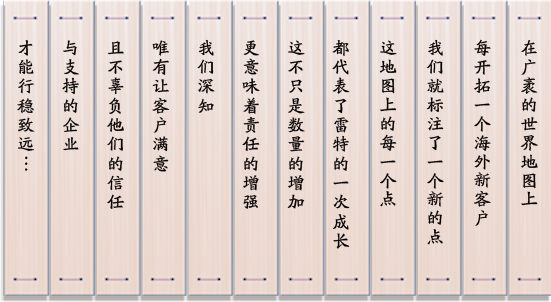 在广袤的世界地图上
每开拓一个海外新客户
我们就标注了一个新的点
这地图上的每一个点
都代表了雷特的一次成长
这不只是数量的增加
更意味着责任的增强
我们深知
唯有让客户满意
且不辜负他们的信任
与支持的企业
才能行稳致远…